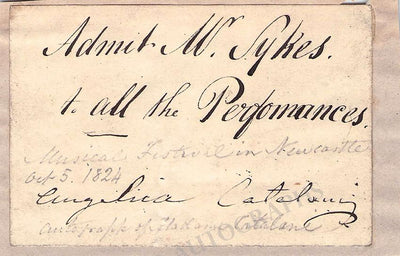 Admit Mr. Sykes.
to all the Perfomances.
Musical Festival in Newcastle
Oct 5. 1824
Angelica Catalani
Autograph of Madame Catalani